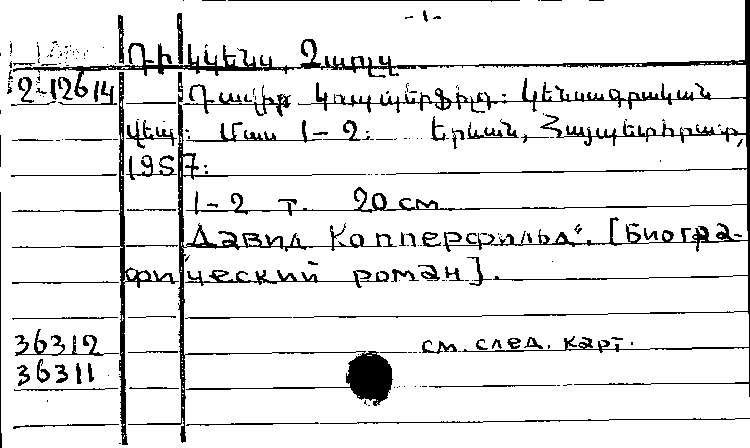 -1-
Դիկկենս, Չարլզ
2-12614 Դավիթ Կոպպերֆիլդ: Կենսագրական
վեպ: Մաս 1-2: Երևան, Հայպետհրատ,
1957:
1-2 т. 20 см
Давид Копперфильд". [Биогра-
фический роман].
36312 см. след. карт.
36311